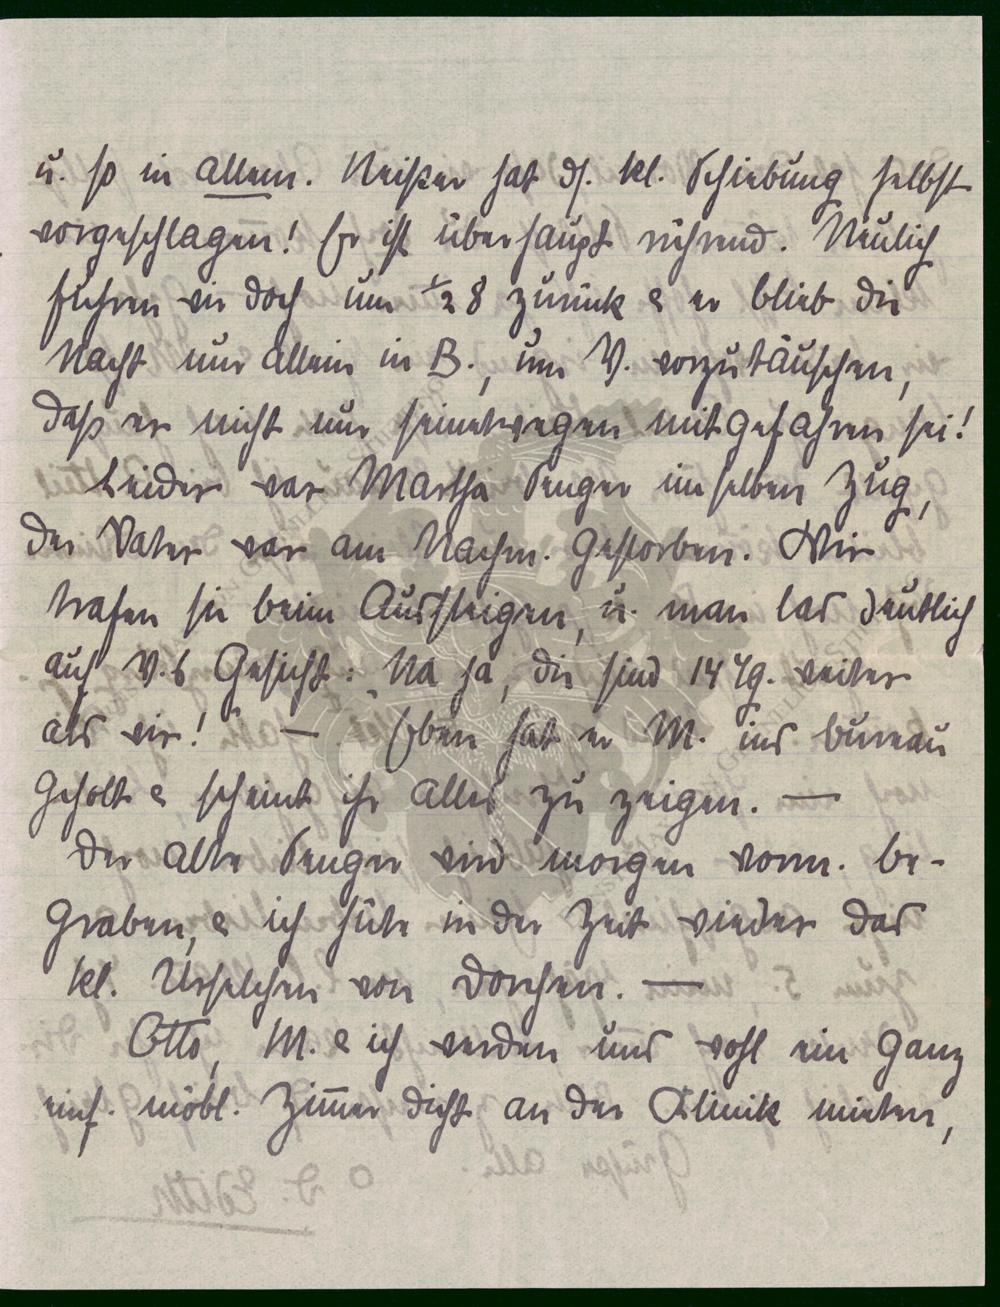 u. so in allem. Neißer hat ds. kl. Schiebung selbst
vorgeschlagen! Er ist überhaupt rührend. Neulich
fuhren wir doch um ½ 8 zurück & er blieb die
Nacht nur allein in B., um V. vorzutäuschen,
daß er nicht nur seinetwegen mitgefahren sei!
Leider war Martha Senger im selben Zug,
der Vater war am Nachm. gestorben. Wir
trafen sie beim Aussteigen, u. man las deutlich
auf V.s Gesicht: „Na ja, die sind 14 Tg. weiter
als wir!" — Eben hat er M. ins bureau
geholt & scheint ihr alles zu zeigen. —
Der alte Senger wird morgen vorm. be-
graben, & ich hüte in der Zeit wieder das
kl. Urselchen von Dorchen. —
Otto, M. & ich werden uns wohl ein ganz
einf. möbl. Zim̄er dicht an der Klinik mieten,